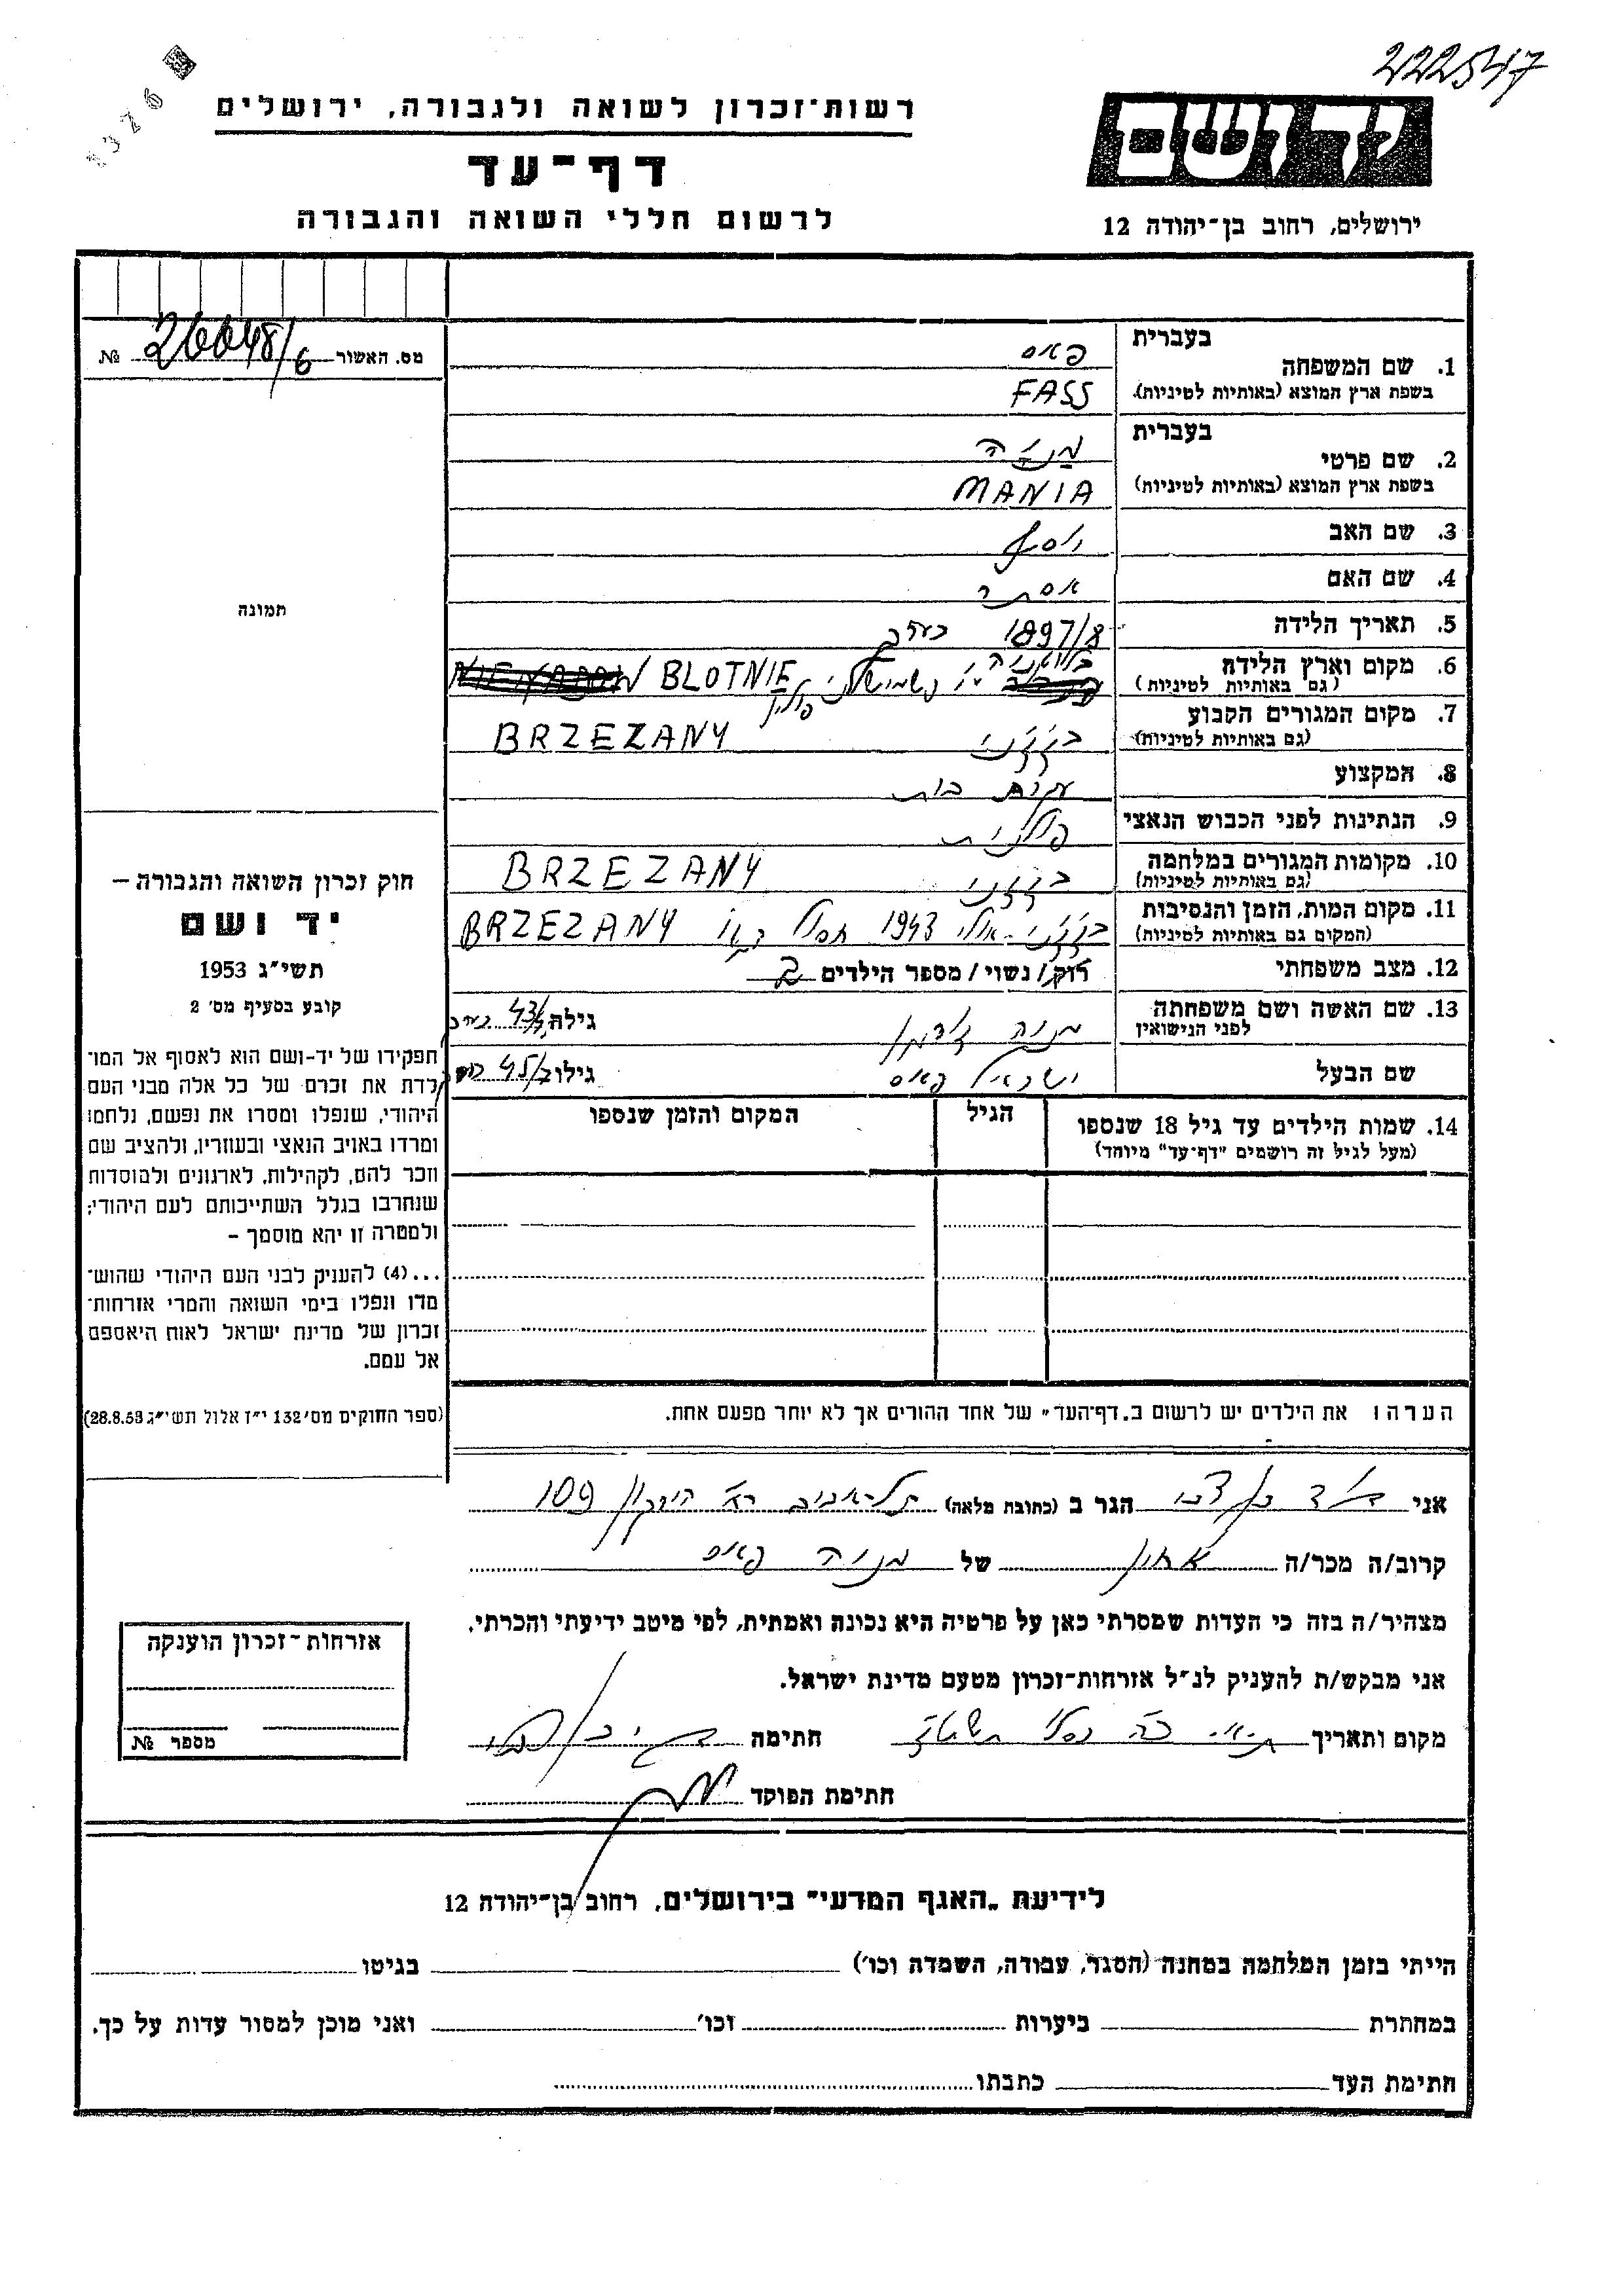 222547
רשות־זכרון לשואה ולגבורה, ירושלים
דף־עד
לרשום חללי השואה והגבורה
יד ושם
ירושלים, רחוב בן־יהודה 12
מס. האשור 26648/6 №
תמונה
חוק זכרון השואה והגבורה –
יד ושם
תשי״ג 1953
קובע בסעיף מס׳ 2
תפקידו של יד-ושם הוא לאסוף אל המו־
לדת את זכרם של כל אלה מבני העם
היהודי, שנפלו ומסרו את נפשם, נלחמו
ומרדו באויב הנאצי ובעוזריו, ולהציב שם
וזכר להם, לקהילות, לארגונים ולמוסדות
שנחרבו בגלל השתייכותם לעם היהודי;
ולמטרה זו יהא מוסמך –
...(4) להעניק לבני העם היהודי שהוש־
מדו ונפלו בימי השואה והמרי אזרחות־
זכרון של מדינת ישראל לאות היאספם
אל עמם.
(ספר החוקים מס׳ 132 י״ז אלול תשי״ג 28.8.53)
1. שם המשפחה בעברית פאס
בשפת ארץ המוצא (באותיות לטיניות) FASS
2. שם פרטי בעברית מניה
בשפת ארץ המוצא (באותיות לטיניות) MANIA
3. שם האב יוסף
4. שם האם אסתר
5. תאריך הלידה 1897/8 בערך
6. מקום וארץ הלידה (גם באותיות לטיניות) פולין BLOTNIE
7. מקום המגורים הקבוע (גם באותיות לטיניות) ברז'ני BRZEZANY
8. המקצוע עקרת בית
9. הנתינות לפני הכבוש הנאצי פולנית
10. מקומות המגורים במלחמה (גם באותיות לטיניות) ברז'ני BRZEZANY
11. מקום המות, הזמן והנסיבות (המקום גם באותיות לטיניות) ברז'ני 1943 BRZEZANY
12. מצב משפחתי רוק/ נשוי/ מספר הילדים 2
13. שם האשה ושם משפחתה לפני הנישואין מניה גילה 43 בערך
שם הבעל ישראל פאס גילו 45
14. שמות הילדים עד גיל 18 שנספו הגיל המקום והזמן שנספו
(מעל לגיל זה רושמים "דף־עד" מיוחד)
הערה: את הילדים יש לרשום ב„דף־העד" של אחד ההורים אך לא יותר מפעם אחת.
אני הגר ב (כתובת מלאה) תל-אביב רח' הירקון 109
קרוב/ה מכר/ה אחיין של מניה פאס
מצהיר/ה בזה כי העדות שמסרתי כאן על פרטיה היא נכונה ואמתית, לפי מיטב ידיעתי והכרתי.
אני מבקש/ת להעניק לנ״ל אזרחות־זכרון מטעם מדינת ישראל.
מקום ותאריך כסלו חתימה
חתימת הפוקד
אזרחות־זכרון הוענקה
מספר №
לידיעת „האגף המדעי" בירושלים, רחוב בן־יהודה 12
הייתי בזמן המלחמה במחנה (הסגר, עבודה, השמדה וכו׳) בגיטו
במחתרת ביערות וכו׳ ואני מוכן למסור עדות על כך.
חתימת העד כתבתו